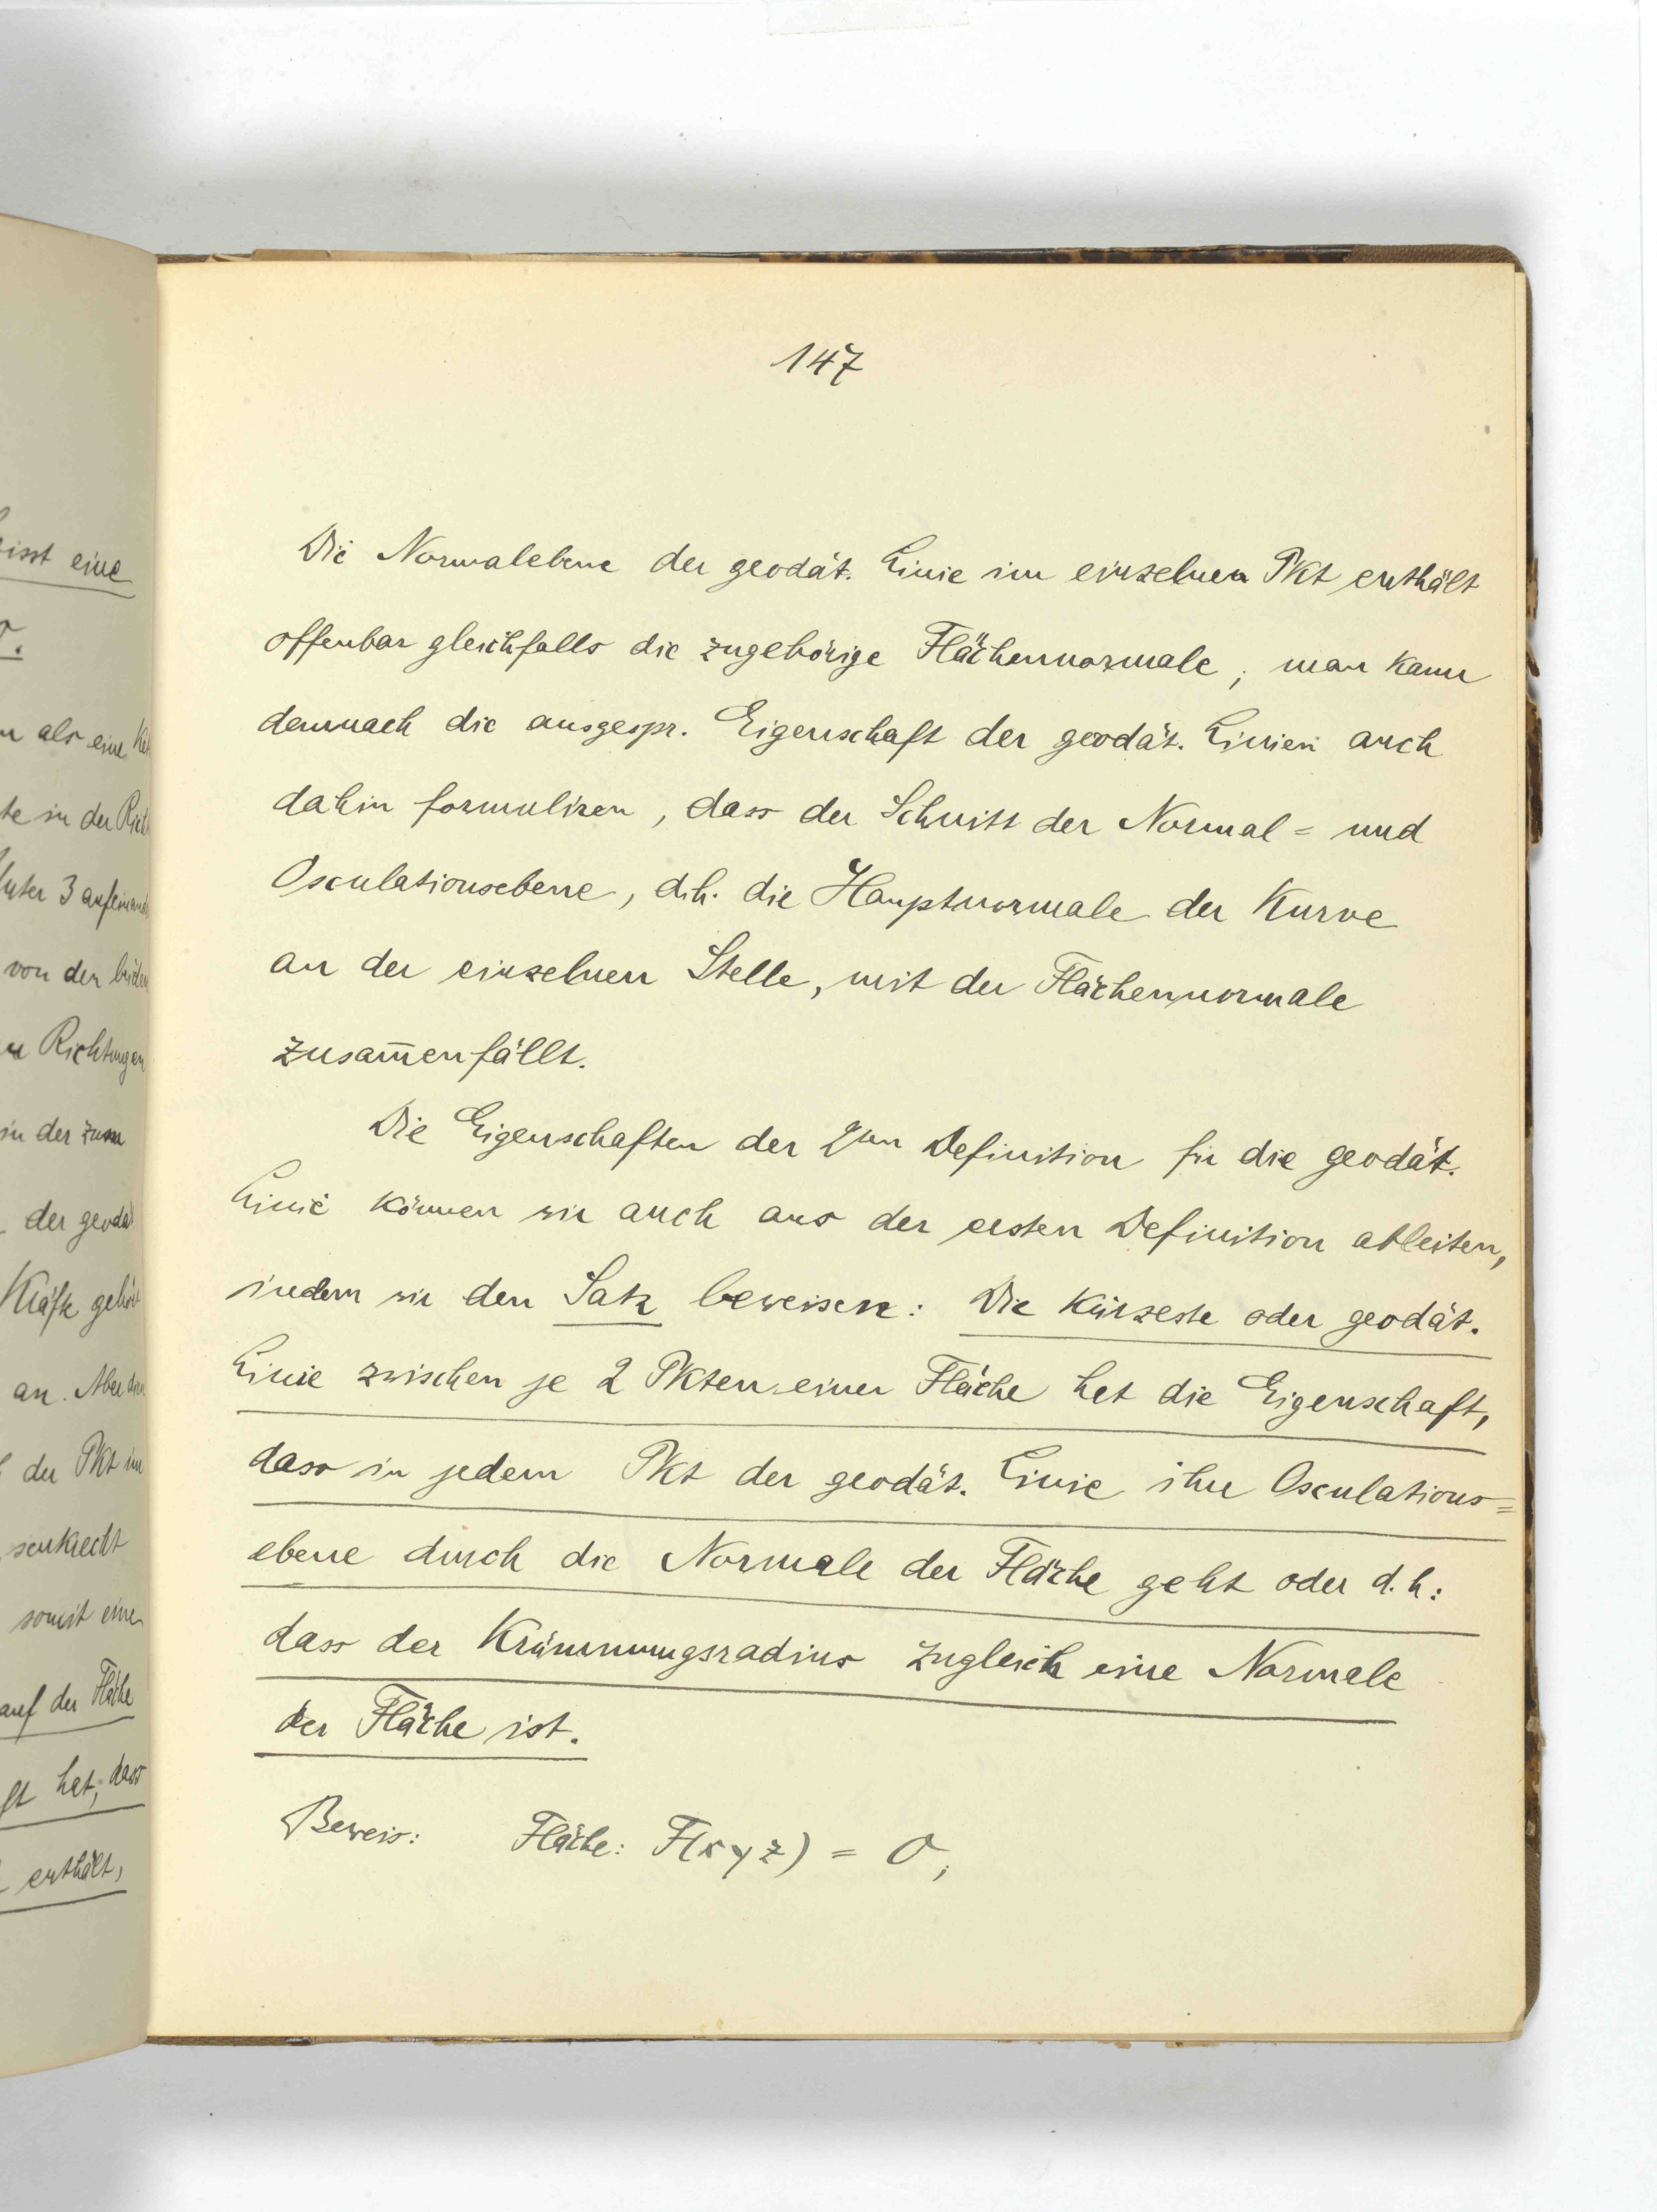 isst eine
als eine
te in der
3
von den
Richtungen
in der
der geodät
Kräfte
an. Aber
der Pkt im
senkrecht
somit einen
auf der Fläche
hat, dass
enthält,
147
Die Normalebene der geodät. Linie im einzelnen Pkt enthält
offenbar gleichfalls die zugehörige Flächennormale; man kann
demnach die ausgespr. Eigenschaft der geodät. Linien auch
dahin formuliren, dass der Schnitt der Normal= und
Osculationsebene, d.h. die Hauptnormale der Kurve
an der einzelnen Stelle, mit der Flächennormale
zusam̄enfällt.
Die Eigenschaften der 2ten Definition für die geodät.
Linie können wir auch aus der ersten Definition ableiten,
indem wir den Satz beweisen: Die kürzeste oder geodät.
Linie zwischen je 2 Pkten einer Fläche hat die Eigenschaft,
dass in jedem Pkt der geodät. Linie ihre Osculations=
ebene durch die Normale der Fläche geht oder d.h:
dass der Krümmungsradius zugleich eine Normale
der Fläche ist.
Beweis: Fläche: F(x y z) = 0,